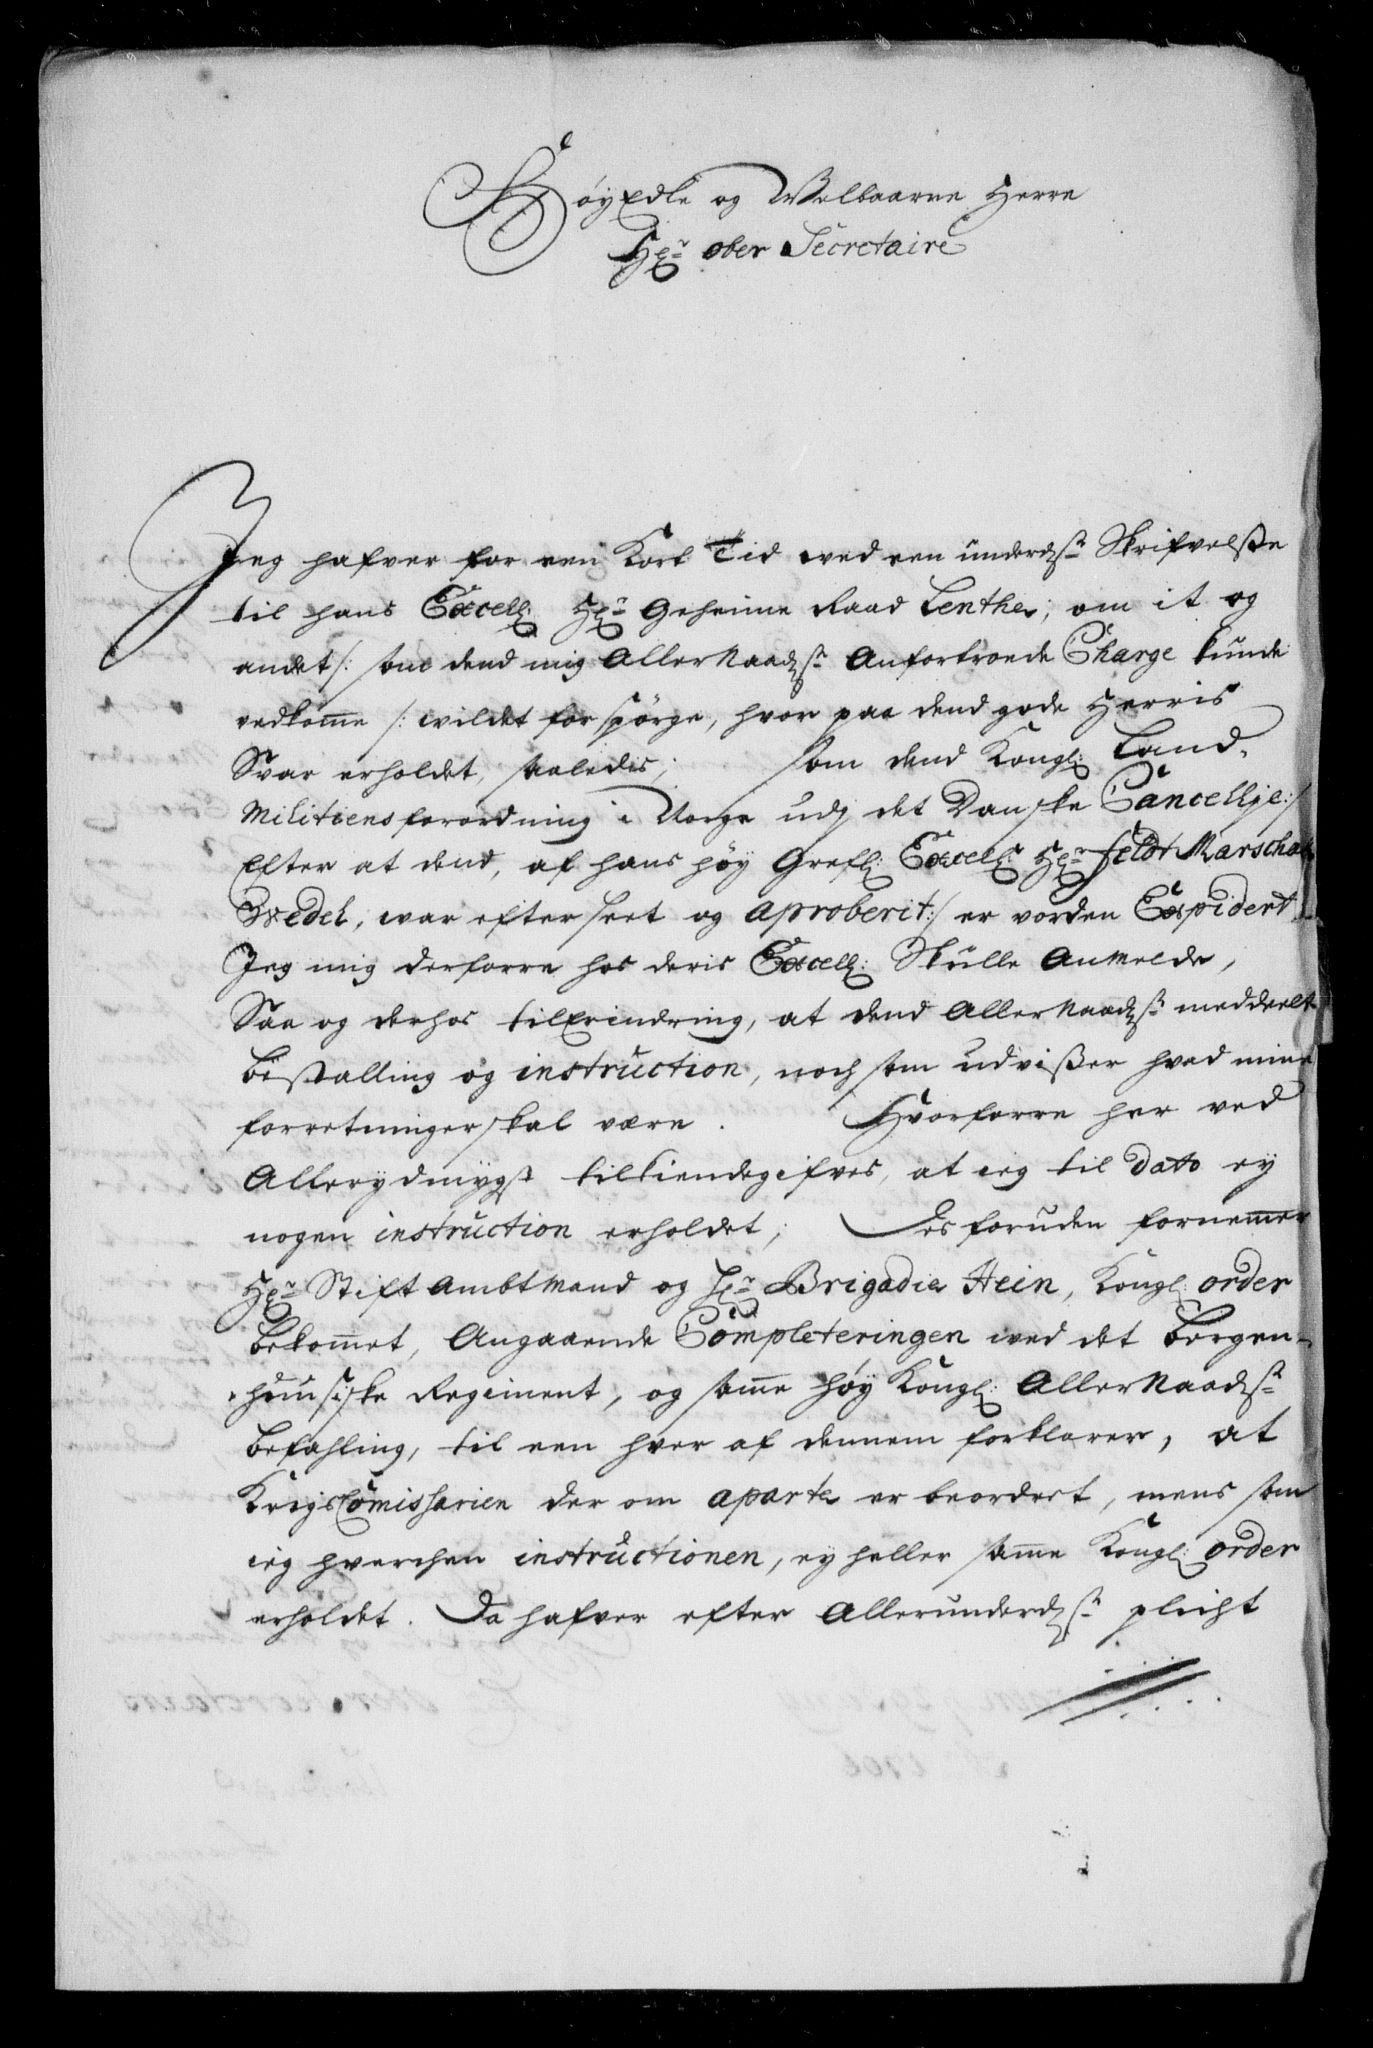 HøyEdle og Velbaarne Herre
Hr: ober Secretaire
Jeg hafver for een Kort Tid wed een underdst: Skrifvelsße
til hans Excell: Hr: Geheime Raad Lenthe, om it og
andet /: som dend mig AllerNaadst: Anfortroede Charge kunde
vedkom̅e :/ wildet forspørge, hvor paa dend gode Herris
Svar erholdet, saaledis; som dend Kongl: Land-
Militiens forordning i Norge udj det Danske Cancellje :/
Efter at dend, af hans høy Grefl: Excell: Hr: feldt Marschalk
Wedel, war efterseet og aproberit :/ er vorden Expidert
Jeg mig derforre hos deris Excell: Skulle Anmelde,
Saa og derhos tilErindring, at dend AllerNaadst: meddeelt
bestalling og instruction, noch som udvißer hvad mine
forretninger skal være. Hvorforre her ved
Allerydmygst tilkiendegifves, at ieg til dato ey
nogen instruction erholdet; Des foruden fornem̅er
Hr: Stift Ambtmand og Hr: Brigadie Hein, Kongl: order
bekom̅et, Angaaende Completeringen wed det Bergen-
huusiske Regiment, og sam̅e høy Kongl: AllerNaadst:
befahling, til een hver af dennem forklarer, at
KrigsCom̅issarien der om aparte er beordert, mens som
ieg hverchen instructionen, ey heller sam̅e Kongl: order
erholdet. Da hafver efter Allerunderdst: plicht